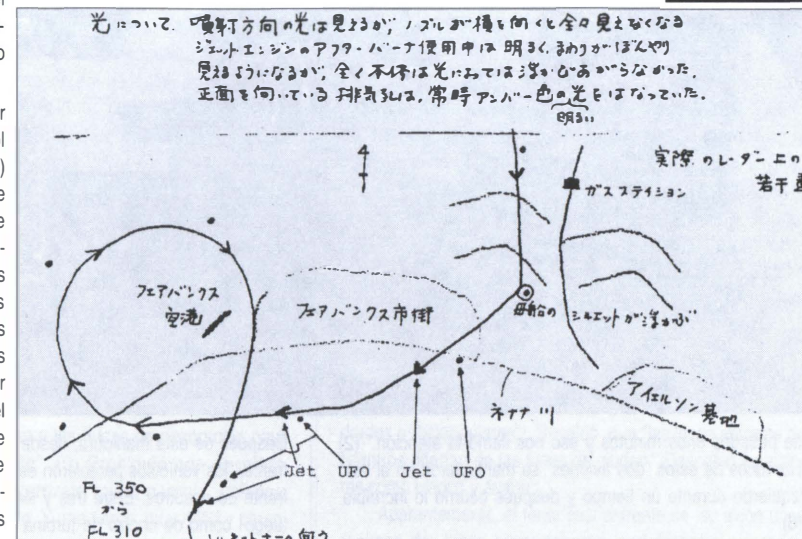 光について. 噴射方向の光は見えるが、ノズルが横を向くと全々見えなくなる
ジェットエンジンのアフターバーナ使用中は 明るく、まわりがぼんやり
見えるようになるが、全く本体は光によっては浮かびあがらなかった.
正面を向いている排気孔は、常時アンバー色の光をはなっていた.
明るい
実際のレーダー上の
若干
ガスステイション
フェアバンクス
空港
フェアバンクス市街
母船の シルエットが浮かぶ
アイエルソン基地
ネナナ川
Jet UFO Jet UFO
FL 350
から
FL 310